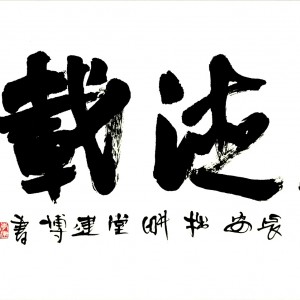 德載
長安拙畊堂建博書